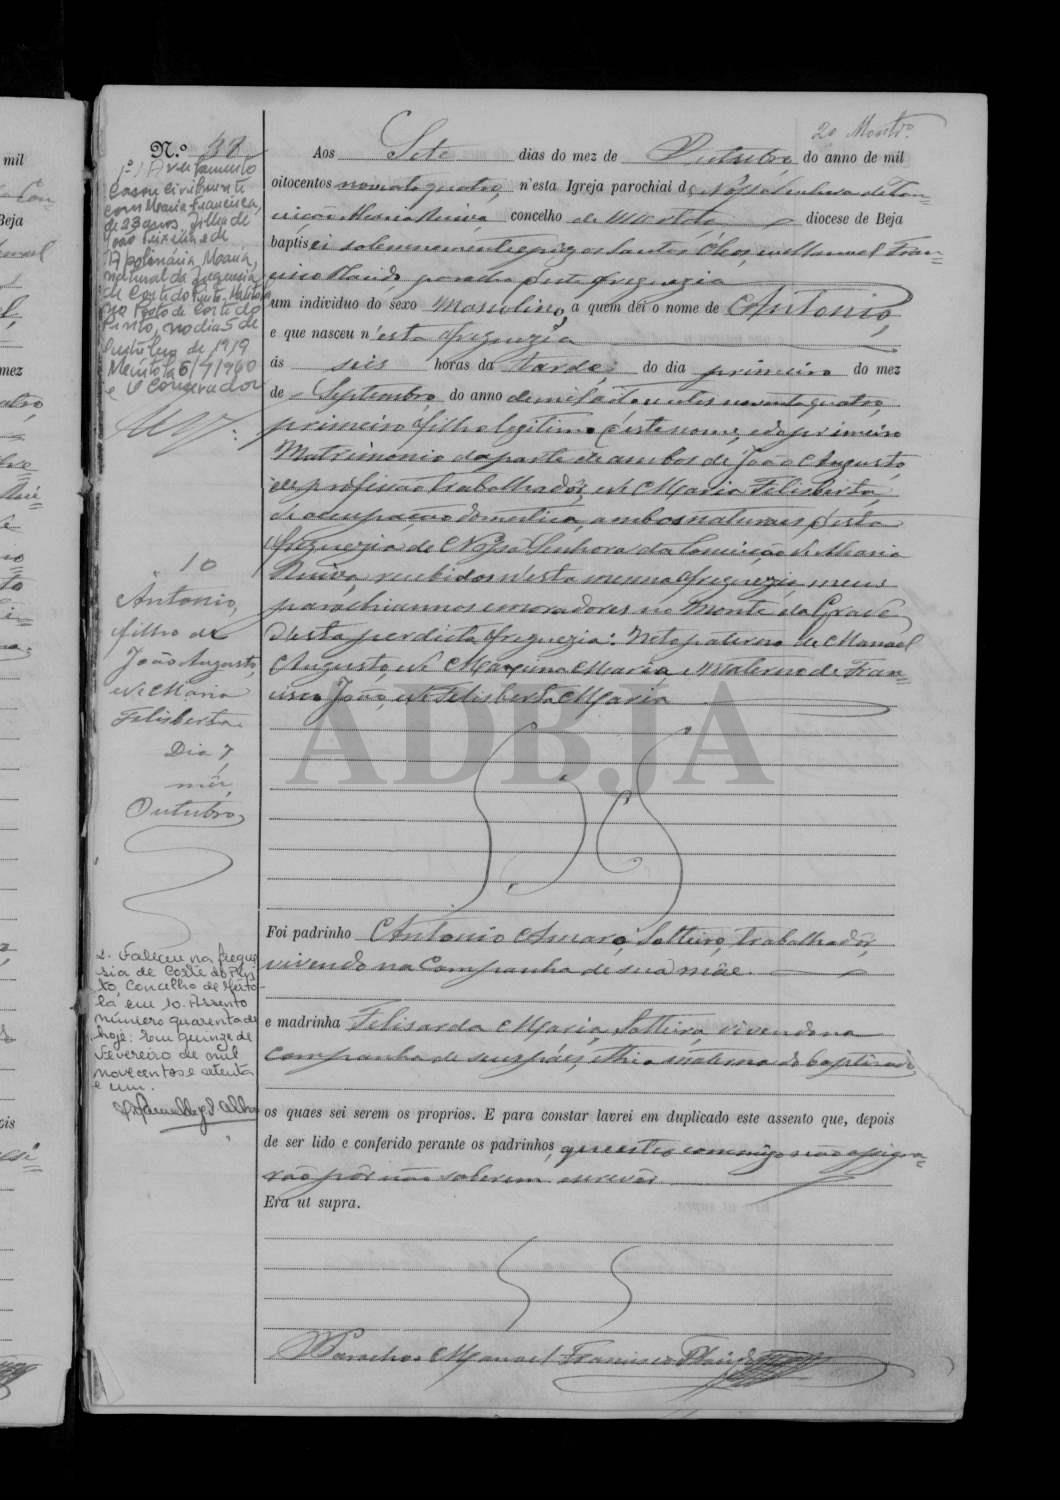 mil
Beja
mez
2º Montrº.
N.º 38
Aos Sete dias do mez de Outubro do anno de mil
oitocentos noventa quatro, n'esta Igreja parochial de Nossa Senhora da Con=
ceição Maria Ruiva, concelho de Mertola diocese de Beja
baptisei solemnemente e puz os Santos Oleos, eu Manoel Fran=
cisco, parocho d'esta freguezia
um individuo do sexo Masculino, a quem dei o nome de Antonio,
e que nasceu n'esta freguezia
ás seis horas da tarde do dia primeiro do mez
de Septembro do anno de mil oitocentos noventa quatro,
primeiro filho legitimo d'este nome, e do primeiro
Matrimonio da parte de ambos de João Augusto,
de profissão trabalhador, e de Maria Felisberta,
de occupação domestica, ambos naturaes d'esta
freguezia de Nossa Senhora da Conceição de Maria
Ruiva, recebidos n'esta mesma freguezia, meus
parochiannos e moradores no Monte da
d'esta per dicta freguezia: Neto paterno de Manoel
Augusto, e de Maria, e Materno de Fran=
cisco João, e de Felisberta Maria
1º) Averbamento
Casou civilmente
com Maria Francisca,
de 23 anos, filha de
João Teixeira e de
Apolinaria Maria,
natural da freguesia
de Corte do Pinto, Mertola
no Posto de Corte do
Pinto, no dia 5 de
Outubro de 1919
Mertola 6/4/1960
O Conservador
10
Antonio,
filho de
João Augusto,
e de Maria
Felisberta.
Dia 7
mêz,
Outubro,
ADBJA
Foi padrinho Antonio Amaro, Solteiro, trabalhador,
vivendo na companha de sua mãe.
e madrinha Felisarda Maria, Solteira, vivendo na
companha de seus paes, e thia materna do baptisado
os quaes sei serem os proprios. E para constar lavrei em duplicado este assento que, depois
de ser lido e conferido perante os padrinhos, que estes commigo não assigna=
rão por não saberem escrever.
Era ut supra.
2. Faleceu na fregue
sia de Corte do Pin
to, concelho de Mérto
la em 10. Assento
número quarenta de
hoje. Em quinze de
Fevereiro de mil
novecentos e setenta
e um.
O Parocho Manoel Francisco